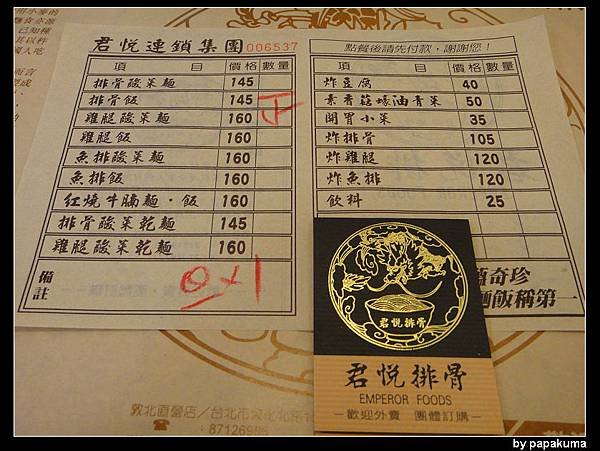 君悅連鎖集團 006537
項 目 價格 數量
排骨酸菜麵 145
排骨飯 145
雞腿酸菜麵 160
雞腿飯 160
魚排酸菜麵 160
魚排飯 160
紅燒牛腩麵・飯 160
排骨酸菜乾麵 145
雞腿酸菜乾麵 160
備註
點餐後請先付款,謝謝您!
項 目 價格 數量
炸豆腐 40
素香菇蠔油青菜 50
開胃小菜 35
炸排骨 105
炸雞腿 120
炸魚排 120
飲料 25
奇珍
麵飯稱第一
君悅排骨
君悅排骨
EMPEROR FOODS
歡迎外賣 團體訂購
敦北直營店/台北市
87126985
by papakuma